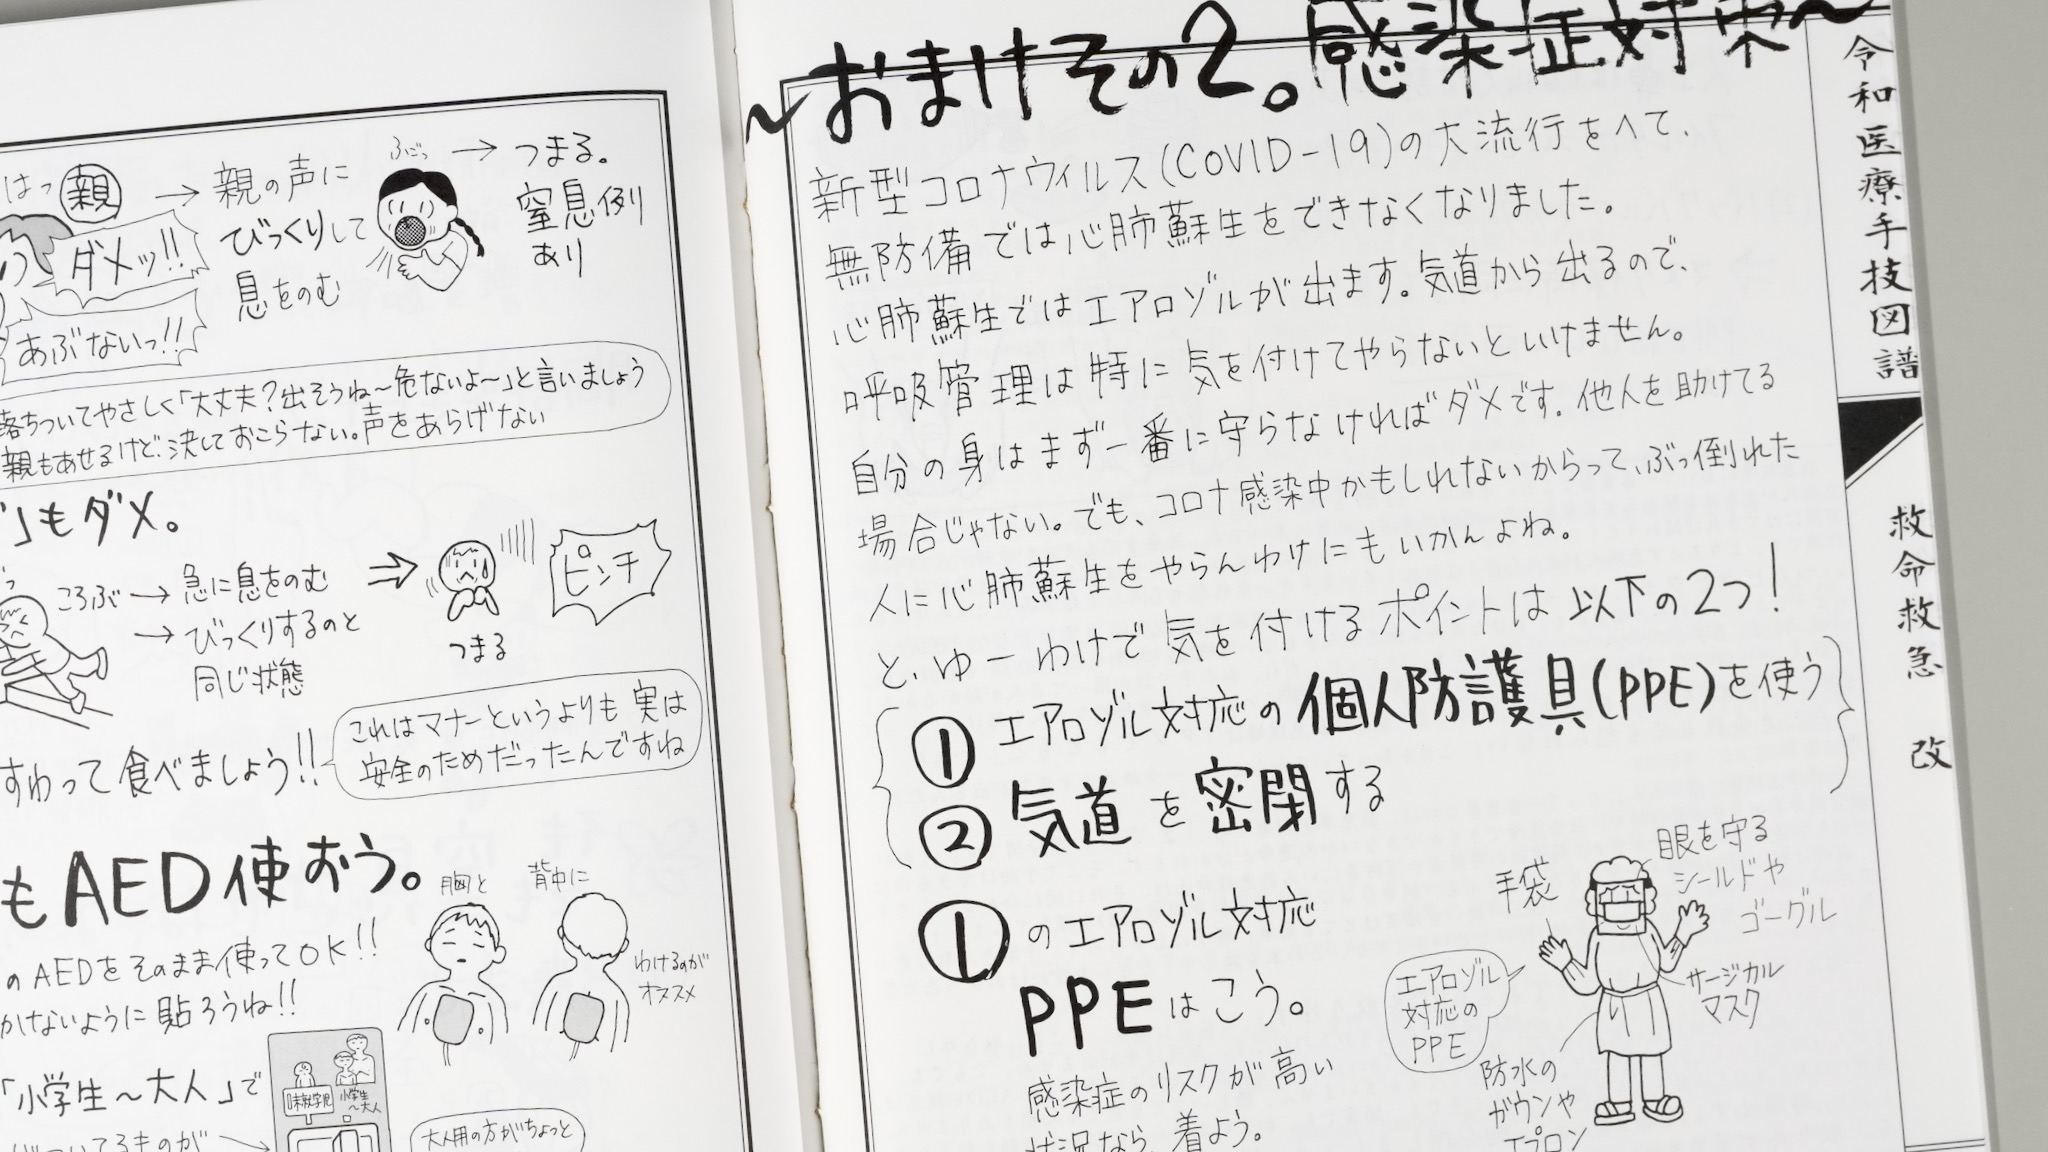 はっ 親 → 親の声に
びっくりして
息をのむ
ダメッ!!
あぶないっ!!
→ つまる。
窒息例
あり
落ちついてやさしく「大丈夫?出そうね〜危ないよ〜」と言いましょう
親もあせるけど、決しておこらない。声をあらげない
」もダメ。
ころぶ → 急に息をのむ
→ びっくりするのと
同じ状態
⇒
つまる
ピンチ
すわって食べましょう!!
これはマナーというよりも実は
安全のためだったんですね
もAED使おう。
のAEDをそのまま使ってOK!!
かないように貼ろうね!!
胸と
背中に
わけるのが
オススメ
「小学生〜大人」で
未就学児
小学生
〜大人
ているものが
大人用の方がちょっと
〜おまけその2。感染症対策〜
新型コロナウィルス(COVID-19)の大流行をへて、
無防備では心肺蘇生をできなくなりました。
心肺蘇生ではエアロゾルが出ます。気道から出るので、
呼吸管理は特に気を付けてやらないといけません。
自分の身はまず一番に守らなければダメです。他人を助けてる
場合じゃない。でも、コロナ感染中かもしれないからって、ぶっ倒れた
人に心肺蘇生をやらんわけにもいかんよね。
と、ゆーわけで気を付けるポイントは以下の2つ!
① エアロゾル対応の個人防護具(PPE)を使う
② 気道を密閉する
①のエアロゾル対応
PPEはこう。
感染症のリスクが高い
状況なら、着よう。
エアロゾル
対応の
PPE
手袋
眼を守る
シールドや
ゴーグル
サージカル
マスク
防水の
ガウンや
エプロン
令和医療手技図譜
救命救急 改